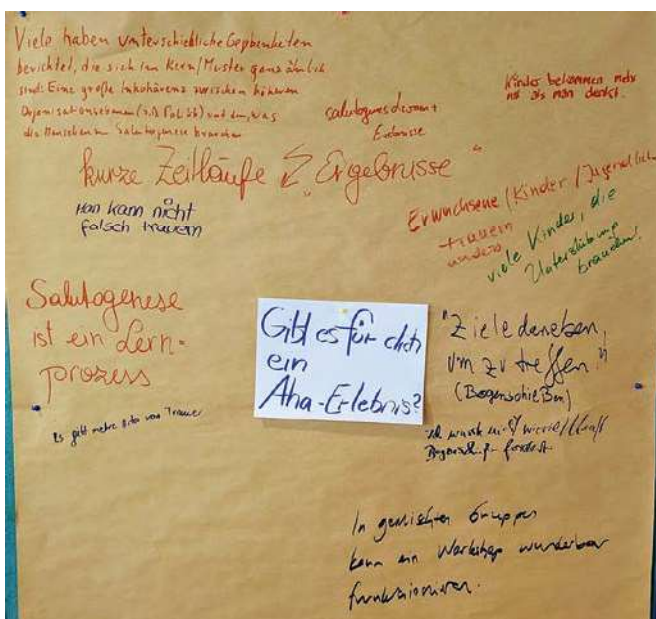 Viele haben unterschiedliche Gegebenheiten
berichtet, die sich im Kern/Muster ganz ähnlich
sind: Eine große Inkohärenz zwischen höheren
Organisationsebenen (z.B. Politik) und dem, was
die Menschen Salutogenese brauchen
Kinder bekommen mehr
mit als man denkt.
Erlebnisse
kurze Zeitläufe "Ergebnisse"
Man kann nicht
falsch trauern
Erwachsene/Kinder/Jugendliche
trauern
anders
viele Kinder, die
Unterstützung
brauchen!
Salutogenese
ist ein Lern-
prozess
Gibt es für dich
ein
Aha-Erlebnis?
"Ziele daneben,
um zu treffen."
(Bogenschießen)
Es gibt mehr Arten von Trauer
Ich wusste nicht wieviel Kraft
In gemischten Gruppen
kann ein Workshop wunderbar
funktionieren.